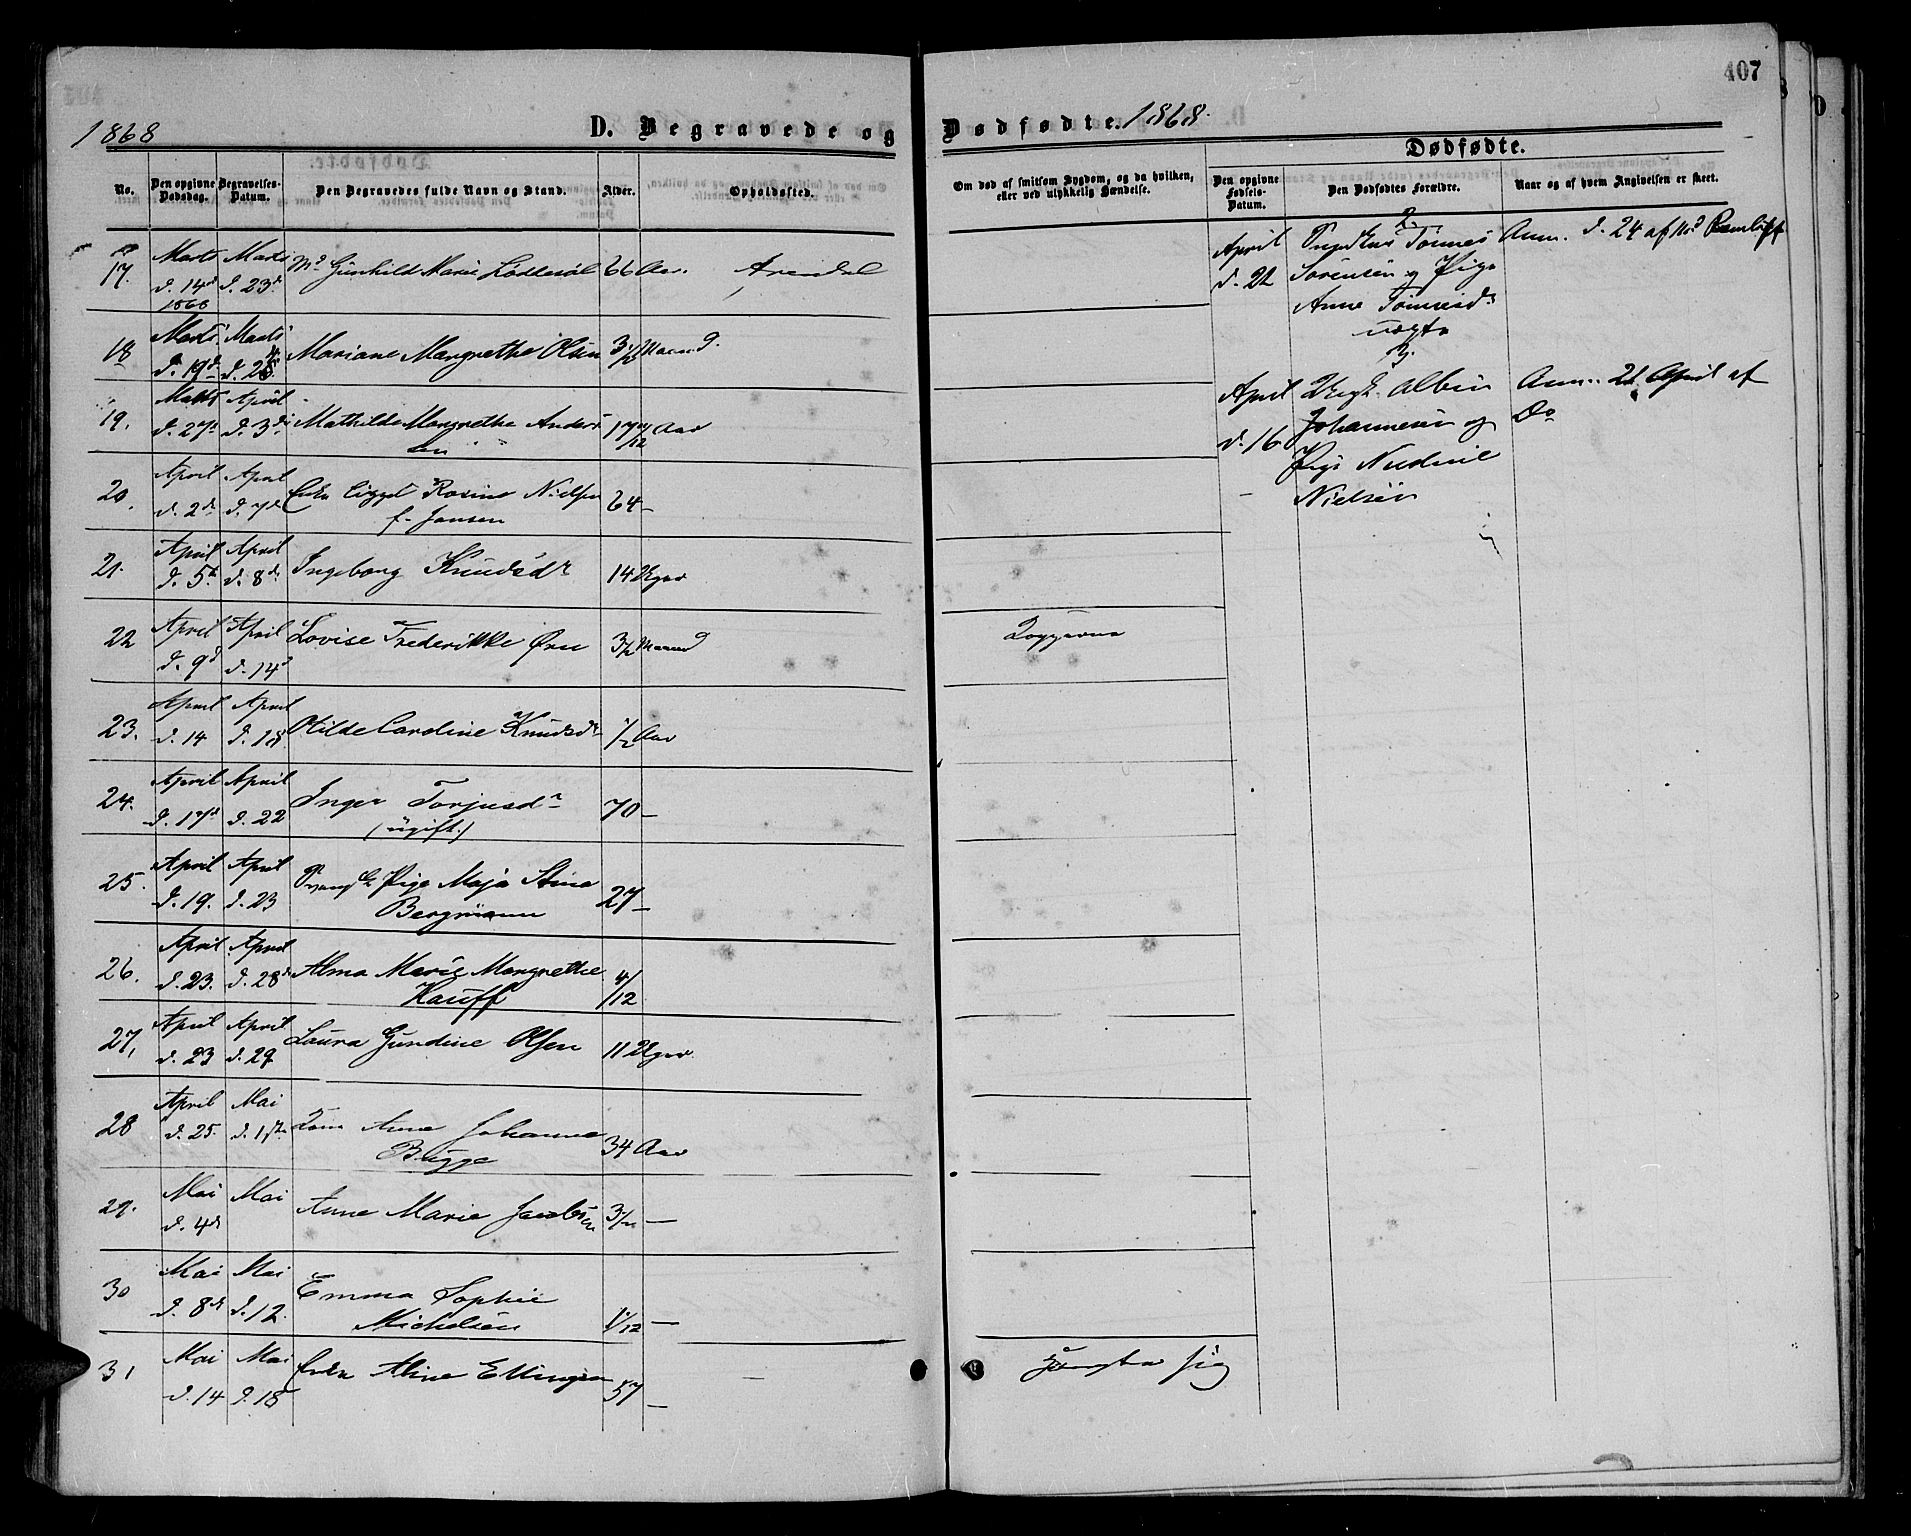 407
1868 D. Begravede og Dødfødte. 1868.
No.
Den opgivne Dødsdag.
Begravelses-Datum.
Den Begravedes fulde Navn og Stand.
Alder.
Opholdssted.
Om død af smitsom Sygdom, og da hvilken, eller ved ulykkelig Hændelse.
Dødfødte.
Den opgivne Fødsels-Datum.
Den Dødfødtes Forældre.
Naar og af hvem Angivelsen er skeet.
17. Marts d. 14d 1868 Marts d. 23d Md Gunhild Marie Lødesøl 66 Aar. Arendal
18 Marts d. 19d Marts d. 25 Mariane Margrethe Olsen 3 1/2 Maaned
19. Marts d. 27d April d. 3d Mathilde Margrethe Andersen 17 Aar
20. April d. 2d April d. 7d Enke Rosine Nielsen
f. Jansen 64 —
21. April d. 5d April d. 8d Ingeborg Knudsdr 14 Uger
22 April d. 9d April d. 14d Lovise Frederikke Ørn 3 1/2 Maaned
23. April d. 14 April d. 18 Otilde Caroline Knudsdr 1/2 Aar
24. April d. 17d April d. 22 Inger Torjusdr
(ugift) 70 —
25. April d. 19. April d. 23 Pige Maja Stina
Bergmann 27 —
26. April d. 23. April d. 28d Alma Marie Margrethe
Kauff 4/12
27, April d. 23 April d. 29 Laura Gundine Olsen 11 Uger
28 April d. 25. Mai d. 1ste Anne Johanne
Bugge 34 Aar
29. Mai d. 4d Mai Anne Marie Jacobsen —
30 Mai d. 8d Mai d. 12. Emma Sophie
Michelsen 1/12 —
31 Mai d. 14 Mai d. 18 Enke Aline Ellingsen 57 —
2.
April d. 22 Tønnes
Sørensen og Pige
Anne Tønnesdr
uægte
Anm. d. 24 af
3.
April d. 16 Ungk. Albin
Johannesen og
Pige
Nielsen
Anm. 21 April af
Do